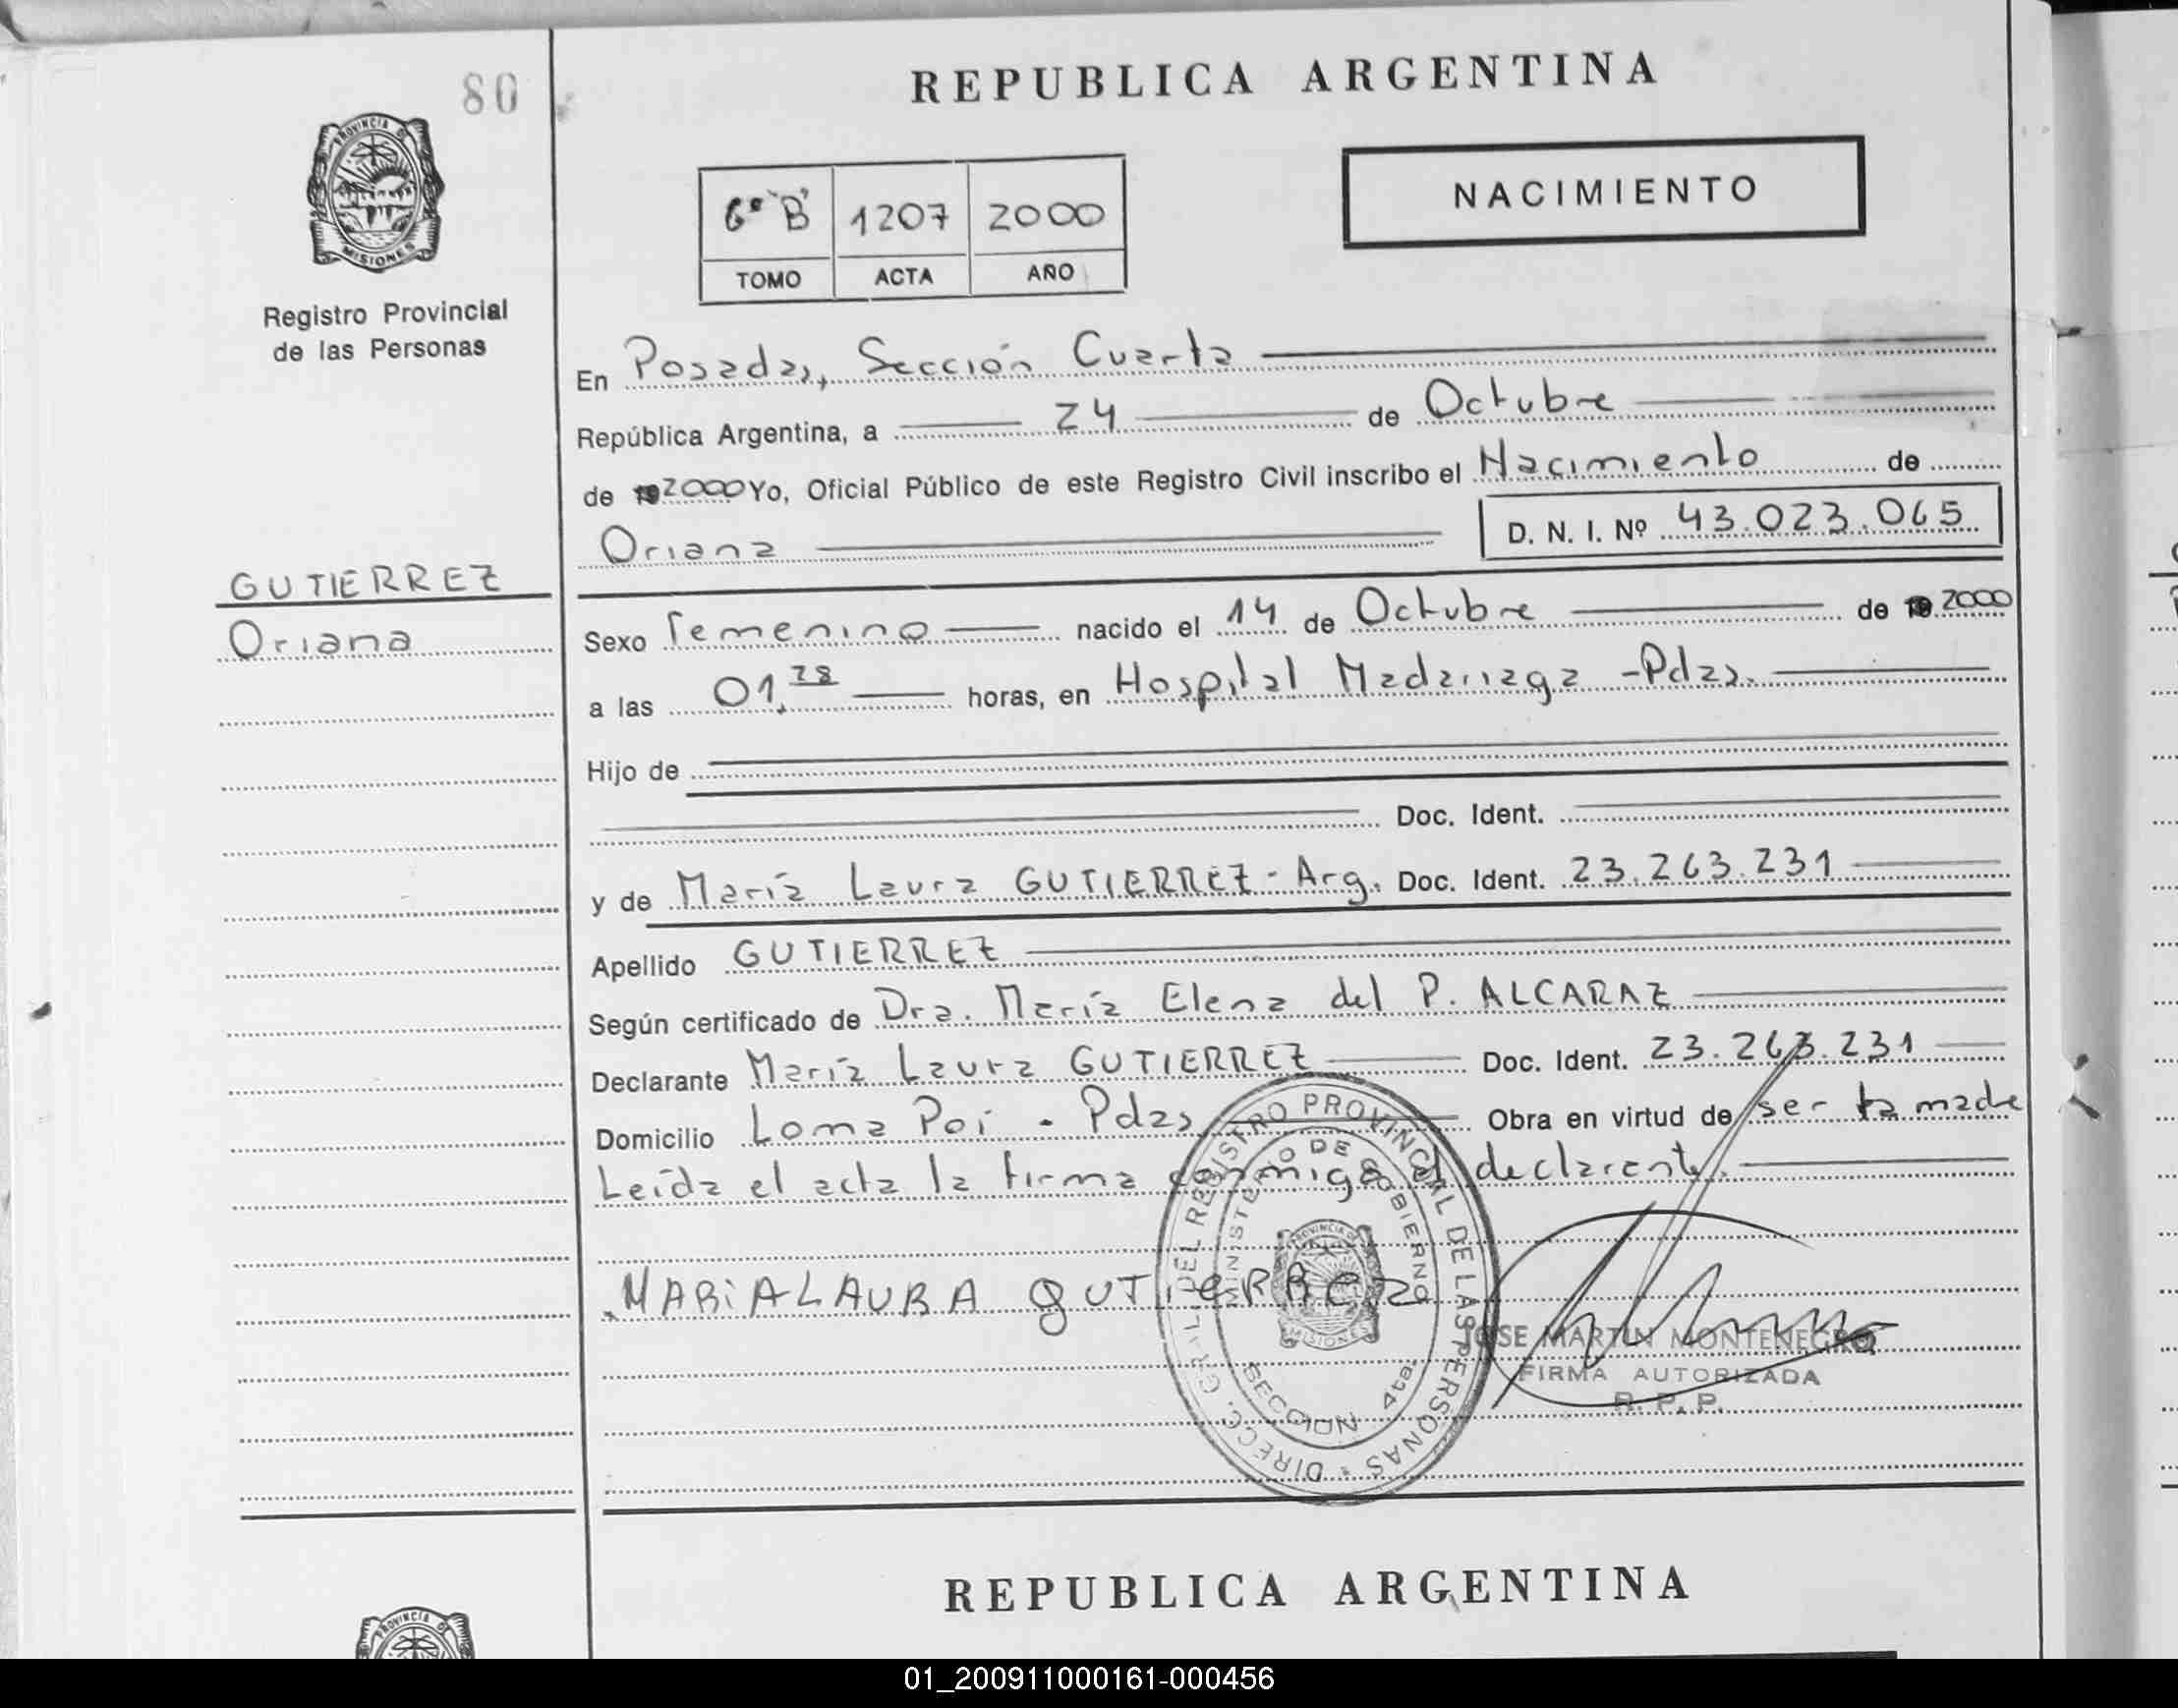 80
REPUBLICA ARGENTINA
PROVINCIA DE
MISIONES
Registro Provincial
de las Personas
6º "B" 1207 2000
TOMO ACTA AÑO
NACIMIENTO
En Posadas, Sección Cuarta
República Argentina, a 24 de Octubre
de 2000 Yo, Oficial Público de este Registro Civil inscribo el Nacimiento de
Oriana D. N. I. Nº 43.023.065
GUTIERREZ
Oriana
Sexo Femenino nacido el 14 de Octubre de 2000
a las 01,28 horas, en Hospital Madariaga - Pdas.
Hijo de
Doc. Ident.
y de María Laura GUTIERREZ - Arg. Doc. Ident. 23.263.231
Apellido GUTIERREZ
Según certificado de Dra. María Elena del P. ALCARAZ
Declarante María Laura GUTIERREZ Doc. Ident. 23.263.231
Domicilio Loma Poi - Pdas Obra en virtud de ser la madre
Leída el acta la firma conmigo el declarante.
MARiA LAURA gUTieRRez
DIRECC. GRAL. DEL REGISTRO PROVINCIAL DE LAS PERSONAS
MINISTERIO DE GOBIERNO
SECCION 4ta.
JOSE MARTIN MONTENEGRO
FIRMA AUTORIZADA
R. P. P.
REPUBLICA ARGENTINA
PROVINCIA
01_200911000161-000456